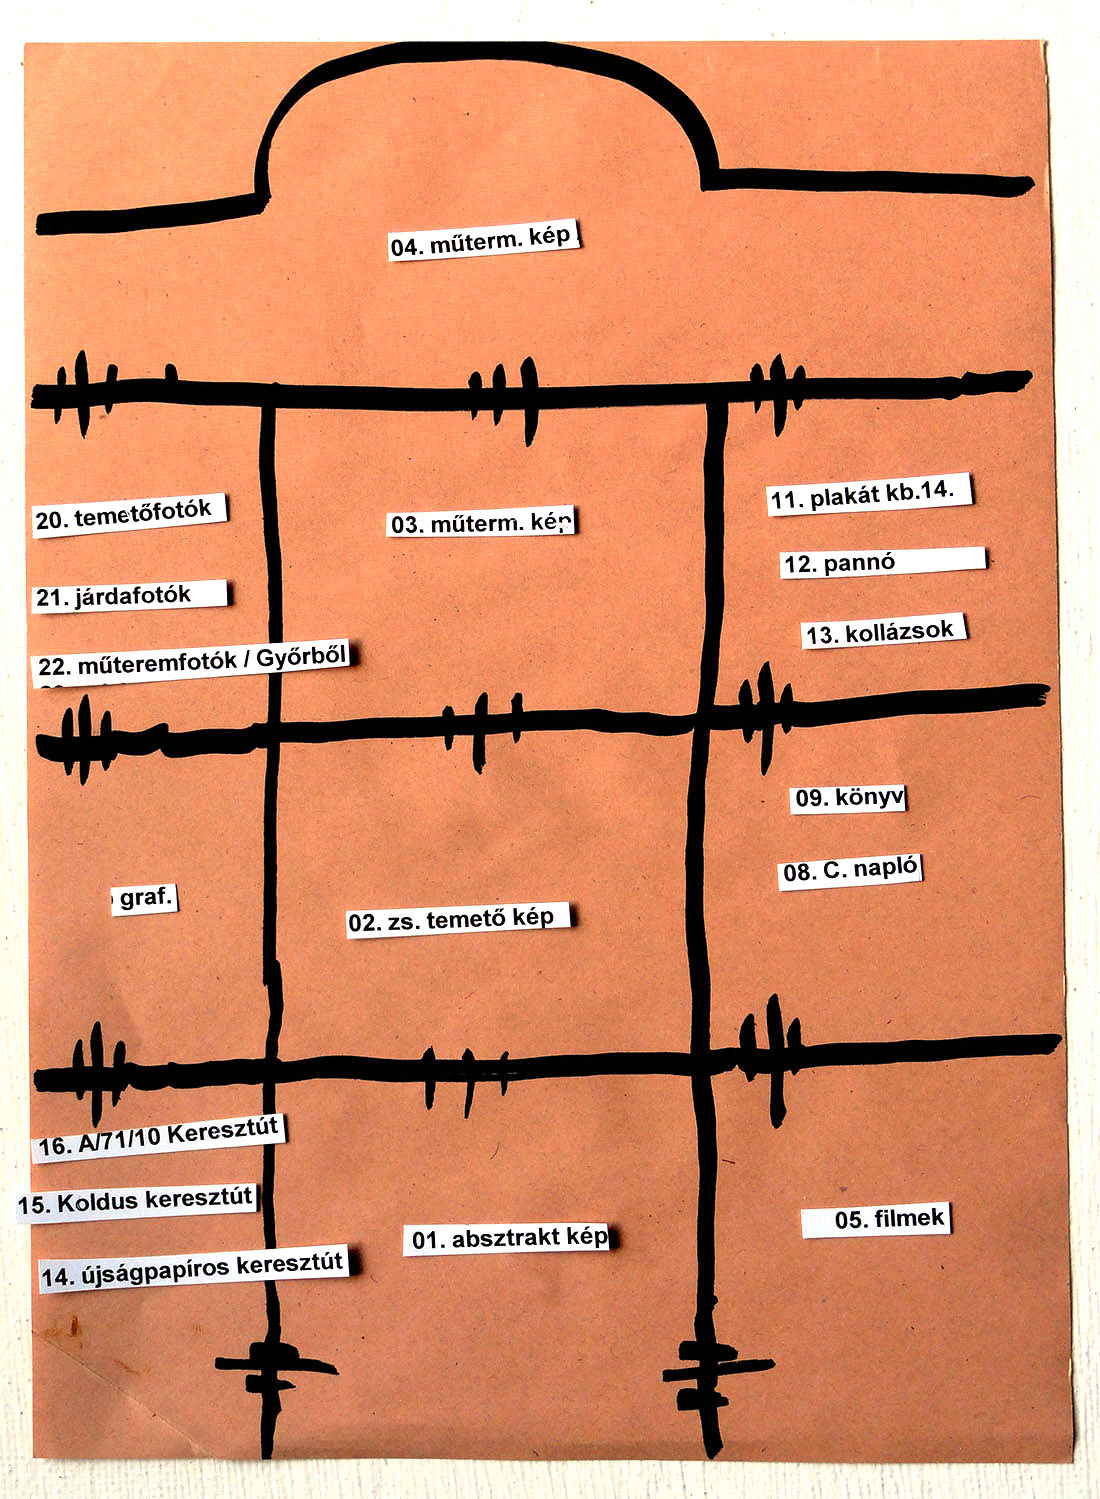 04. műterm. kép
20. temetőfotók
21. járdafotók
22. műteremfotók / Győrből
03. műterm. kép
11. plakát kb.14.
12. pannó
13. kollázsok
graf.
02. zs. temető kép
09. könyv
08. C. napló
16. A/71/10 Keresztút
15. Koldus keresztút
14. újságpapíros keresztút
01. absztrakt kép
05. filmek